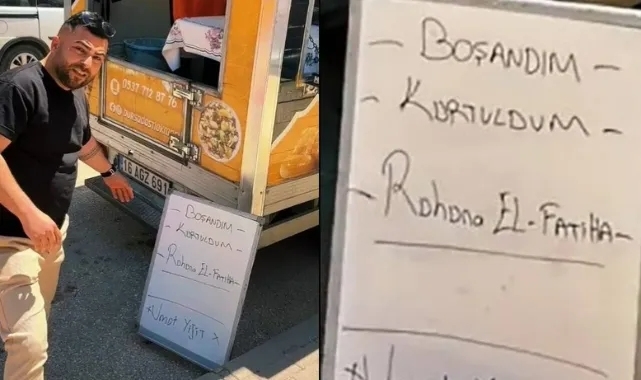 0537 712 87 76
16 AGZ 691
- BOŞANDIM -
- KURTULDUM -
- Rohono EL-FATIHA-
BOŞANDIM -
- KURTULDUM -
- Rohono EL-FATIHA-